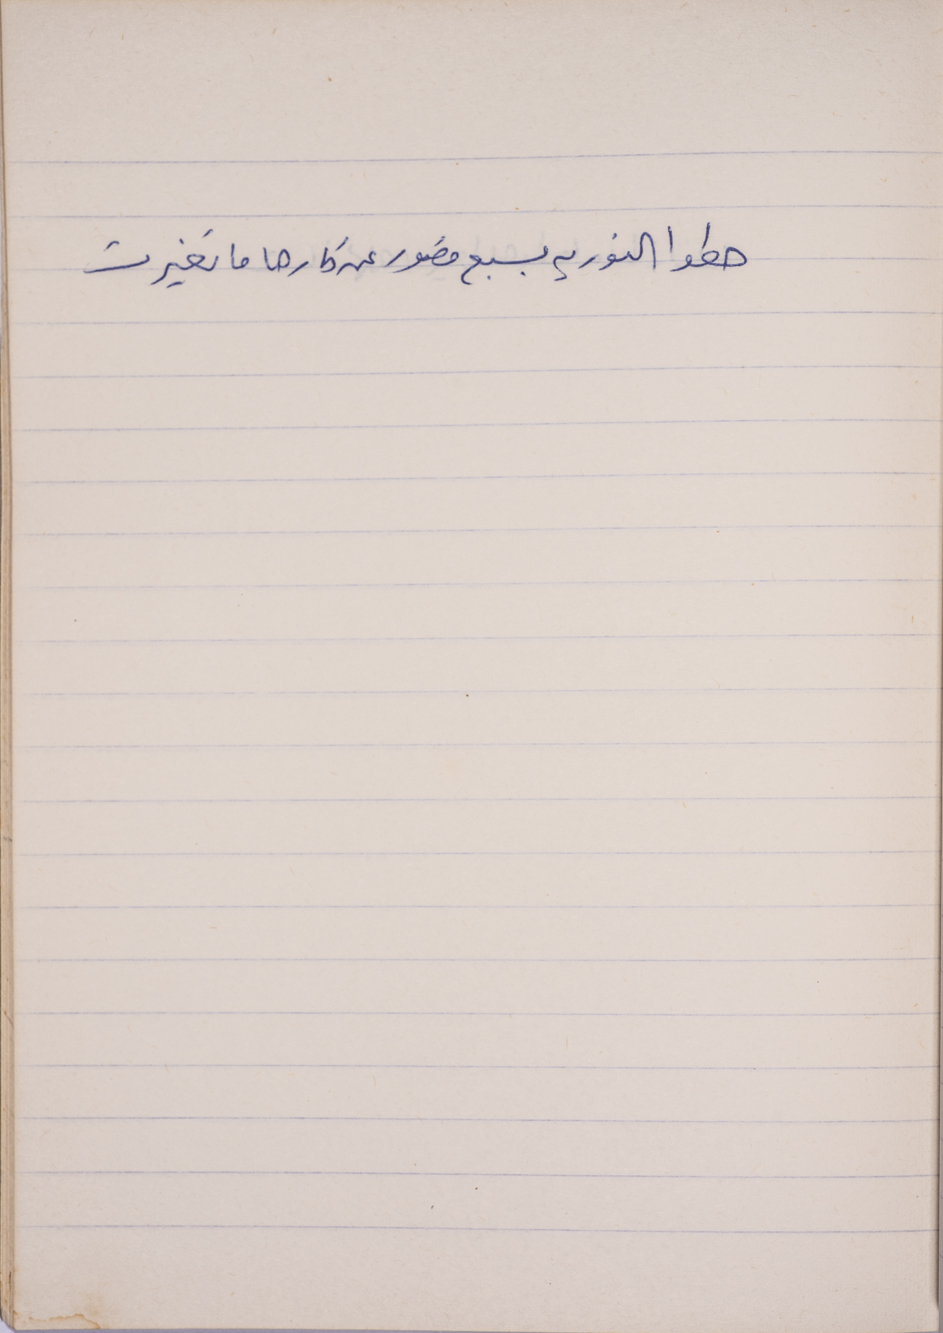 حطوا النوريه بسبع قصور عن كارها ما تغيرت